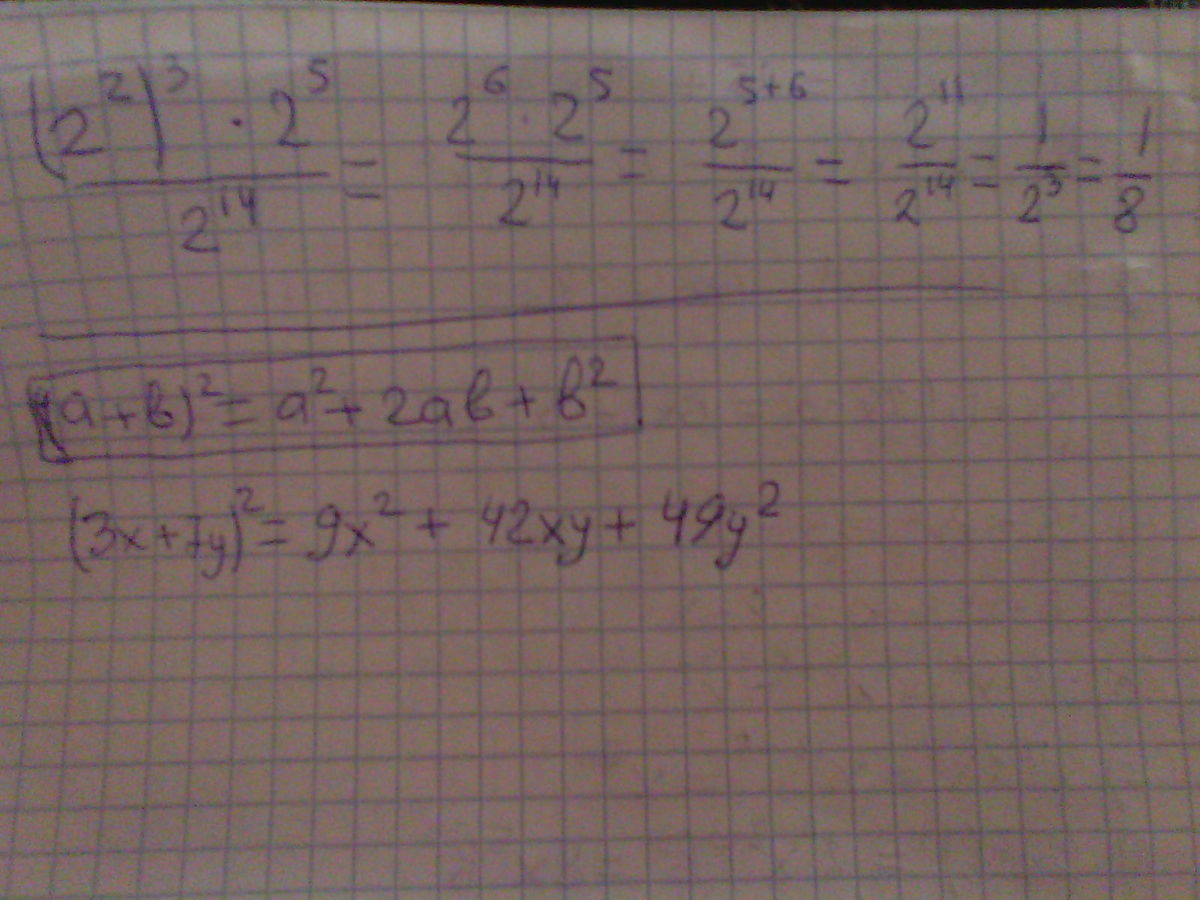 (2²)³ · 2⁵ / 2¹⁴ = 2⁶ · 2⁵ / 2¹⁴ = 2⁵⁺⁶ / 2¹⁴ = 2¹¹ / 2¹⁴ = 1 / 2³ = 1 / 8
(a+в)² = a² + 2aв + в²
(3x+7y)² = 9x² + 42xy + 49y²